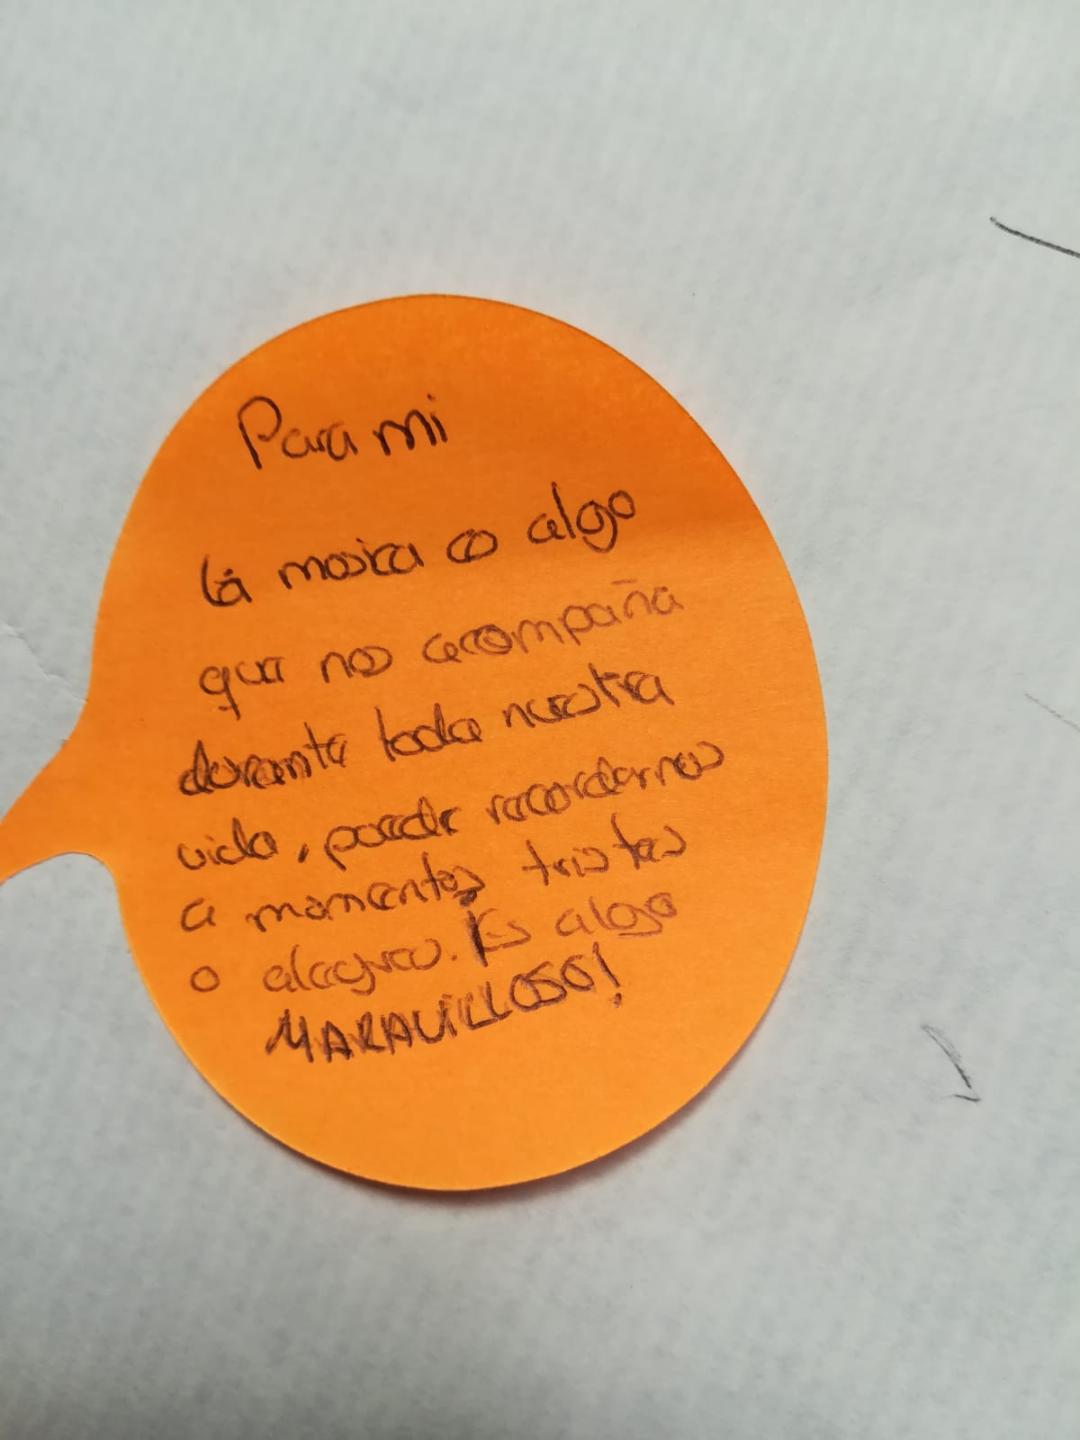 Para mi
la música es algo
que nos acompaña
durante toda nuestra
vida, puede recordarnos
a momentos tristes
o alegres. Es algo
MARAVILLOSO!